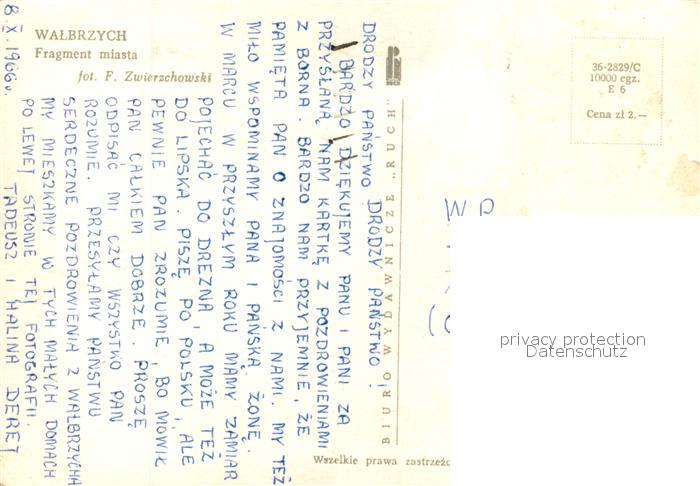 WAŁBRZYCH
Fragment miasta
fot. F. Zwierzchowski
8.X.1966 r.
DRODZY PAŃSTWO! DRODZY PAŃSTWO!
BARDZO DZIĘKUJEMY PANU I PANI ZA
PRZYSŁANĄ NAM KARTKĘ Z POZDROWIENIAMI
Z BORNA. BARDZO NAM PRZYJEMNIE, ŻE
PAMIĘTA PAN O ZNAJOMOŚCI Z NAMI. MY TEŻ
MIŁO WSPOMINAMY PANA I PAŃSKĄ ŻONĘ.
W MARCU W PRZYSZŁYM ROKU MAMY ZAMIAR
POJECHAĆ DO DREZNA, A MOŻE TEŻ
DO LIPSKA. PISZĘ PO POLSKU, ALE
PEWNIE PAN ZROZUMIE, BO MÓWIŁ
PAN CAŁKIEM DOBRZE. PROSZĘ
ODPISAĆ MI CZY WSZYSTKO PAN
ROZUMIE. PRZESYŁAMY PAŃSTWU
SERDECZNE POZDROWIENIA Z WAŁBRZYCHA
MY MIESZKAMY W TYCH MAŁYCH DOMACH
PO LEWEJ STRONIE TEJ FOTOGRAFII.
TADEUSZ I HALINA DEREJ
BIURO WYDAWNICZE „RUCH"
36-2829/C
10000 egz.
E 6
Cena zł 2.—
privacy protection
Datenschutz
Wszelkie prawa